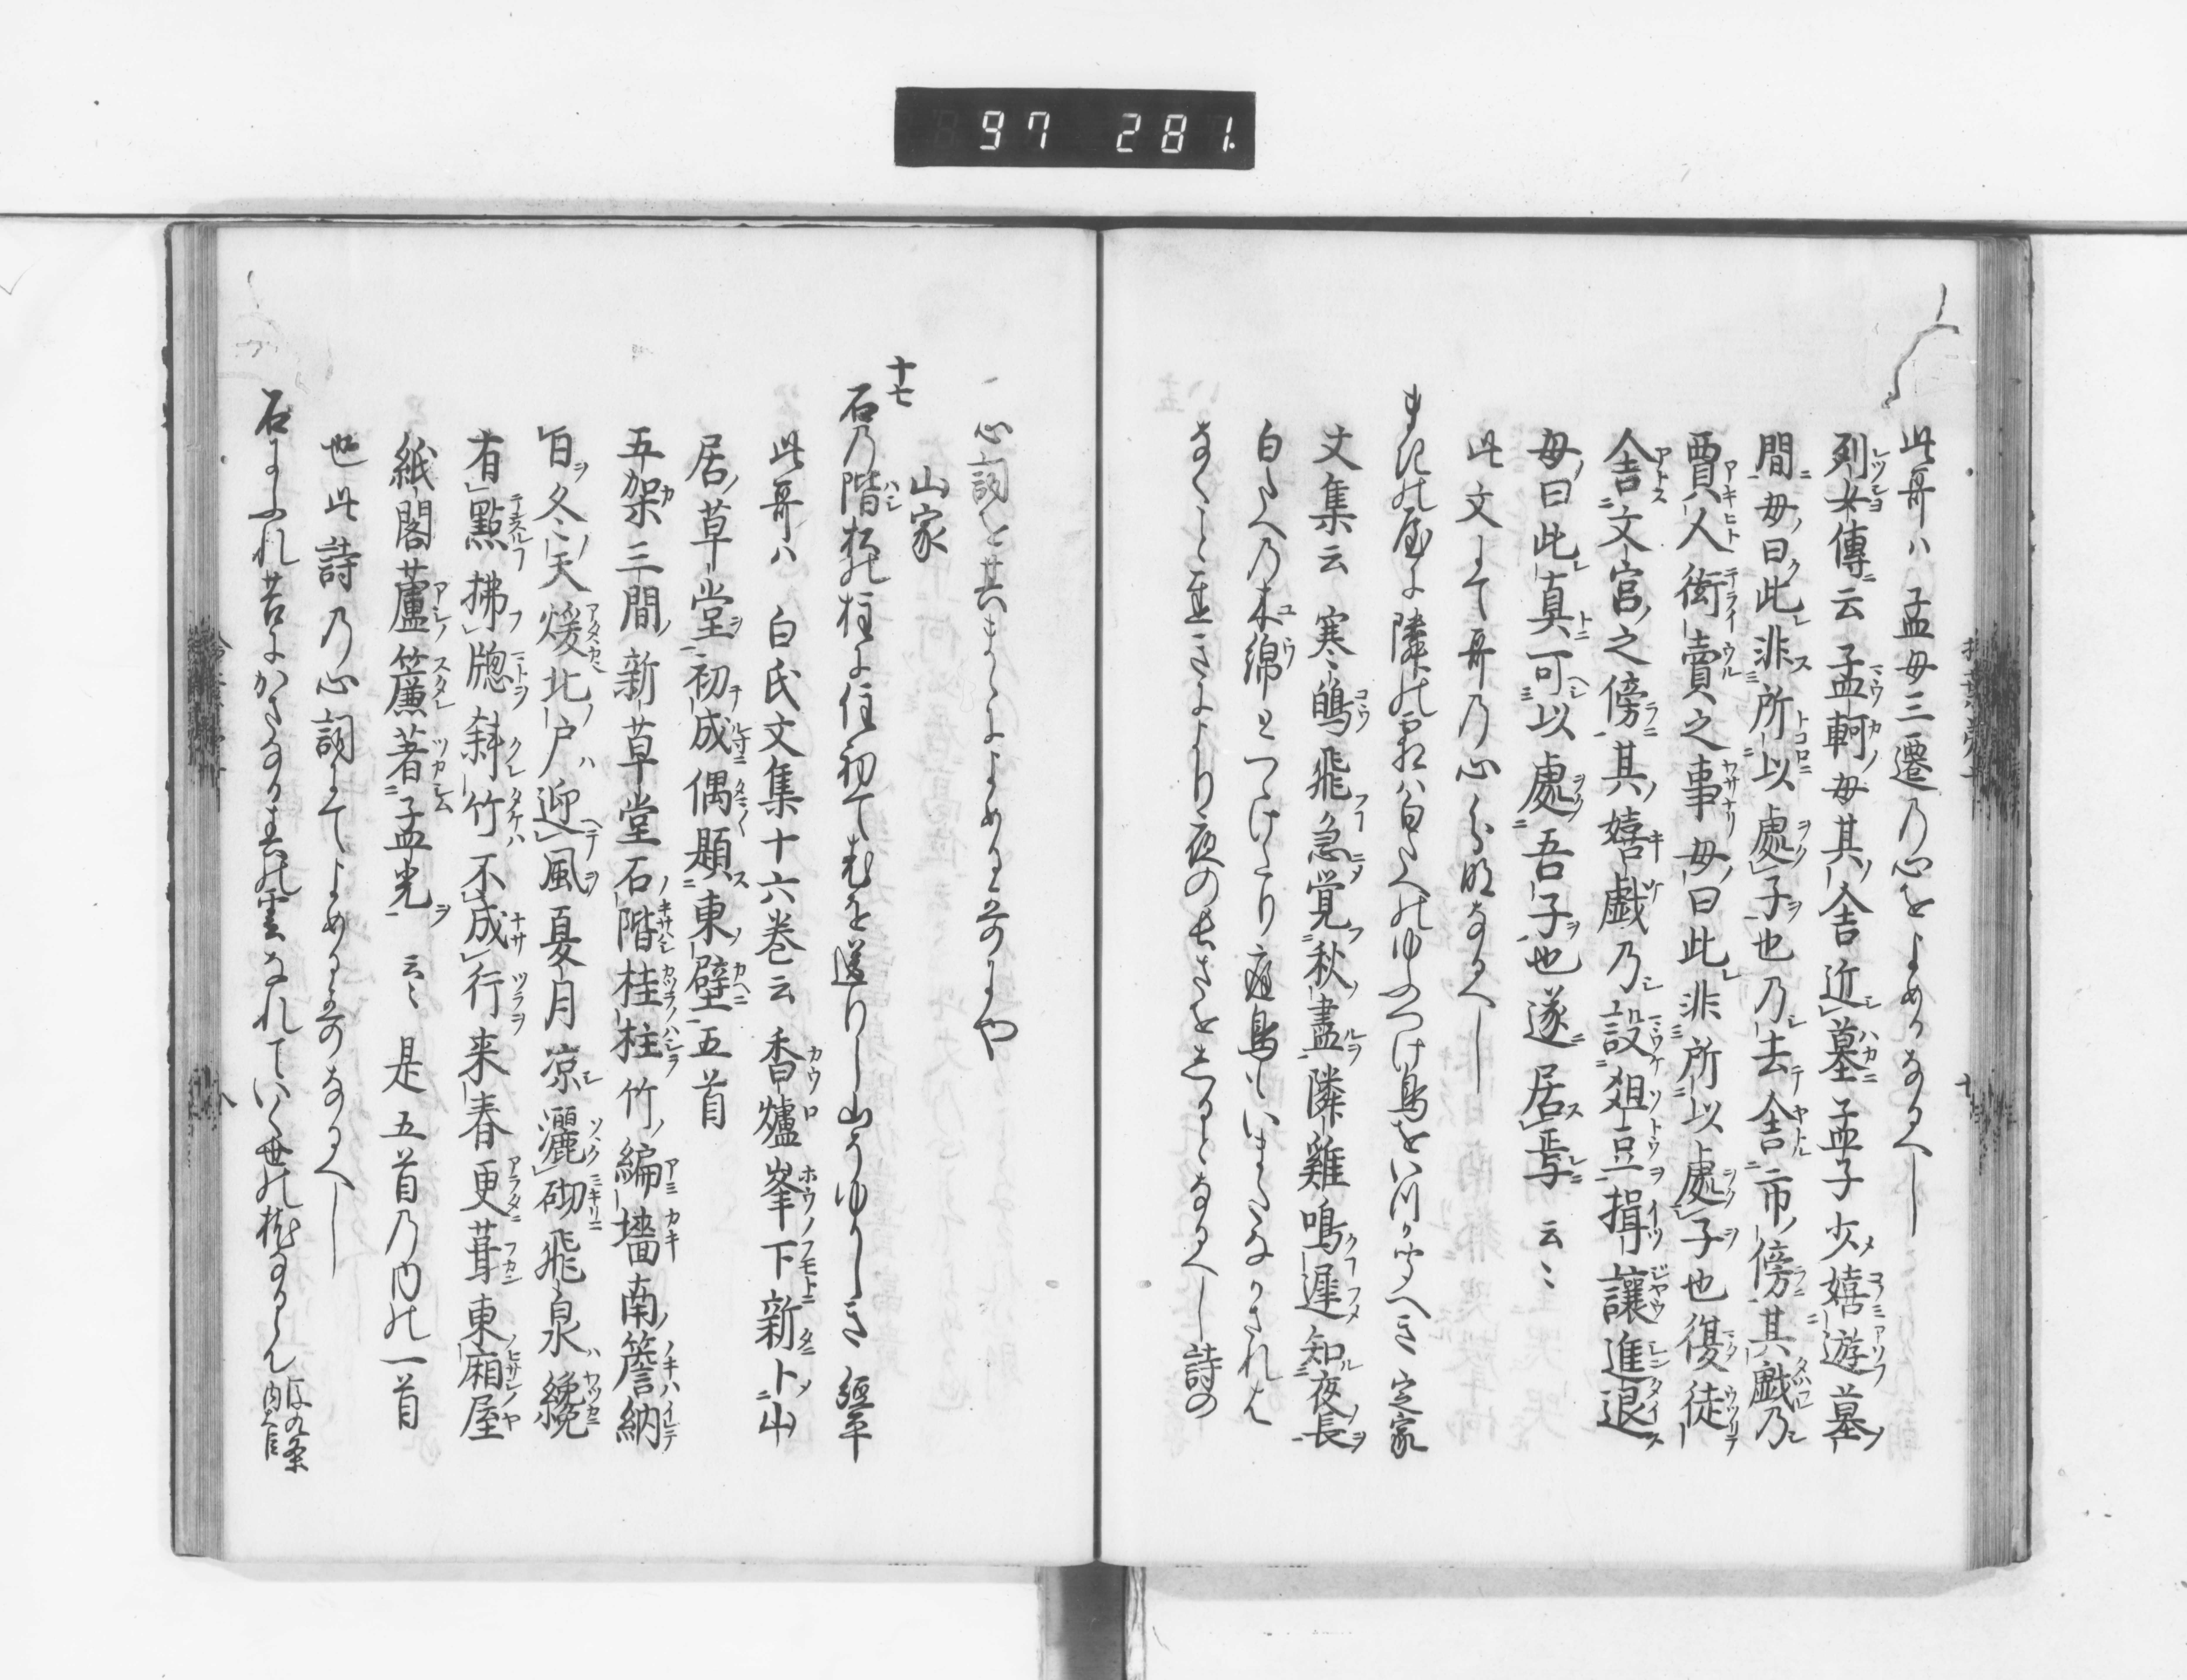 97 281.
此哥ハ孟母三遷乃心をよめるなるへし
列女傳云孟軻母其舎近墓孟子少嬉遊墓
間毋曰此非所以處子也乃去舎市傍其戯乃
賈人衒賣之事毋曰此非所以處子也復徒
舎文官之傍其嬉戯乃設爼豆揖讓進退
毋曰此真可以處吾子也遂居焉云〻
此文にて哥乃心分明なるへし
まきの屋に隣の霜ハ白たへのゆふつけ鳥をいつか聞へき 定家
文集云寒鴊飛急覚秋盡隣雞鳴遅知夜長
白たへ乃木綿とつゝけたり庭鳥もいまたなかされは
なく〳〵起きよより夜のなかさをしると なるへし詩の
心詞を其まゝによめる哥にや
山家
十七
石乃階松の柱に住初て老を送りし山そゆかしき 經平
此哥ハ白氏文集十六巻云香爐峯下新卜山
居草堂初成偶題東壁五首
五架三間新草堂石階桂柱竹編墻南簷納
日冬天煖北戸迎風夏月凉灑砌飛泉
有點拂牕斜竹不成行来春更葺東廂屋
紙閣蘆簾著孟光 云〻 是五首乃内の一首
也此詩乃心詞にてよめる哥なるへし
石にふれ苔にかさなる